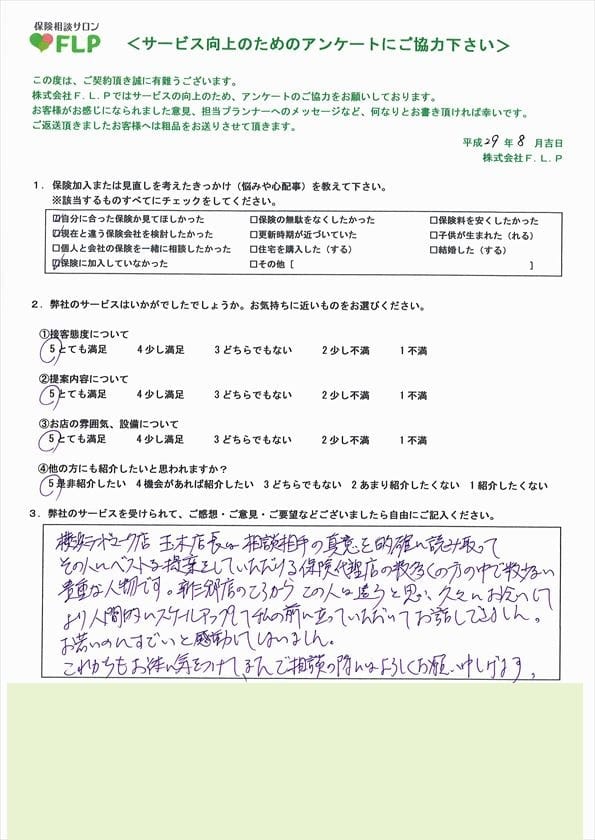 保険相談サロン
FLP
＜サービス向上のためのアンケートにご協力下さい＞
この度は、ご契約頂き誠に有難うございます。
株式会社Ｆ.Ｌ.Ｐではサービスの向上のため、アンケートのご協力をお願いしております。
お客様がお感じになられました意見、担当プランナーへのメッセージなど、何なりとお書き頂ければ幸いです。
ご返送頂きましたお客様へは粗品をお送りさせて頂きます。
平成 29 年 8 月吉日
株式会社Ｆ.Ｌ.Ｐ
１．保険加入または見直しを考えたきっかけ（悩みや心配事）を教えて下さい。
※該当するものすべてにチェックをしてください。
☑自分に合った保険か見てほしかった　□保険の無駄をなくしたかった　□保険料を安くしたかった
☑現在と違う保険会社を検討したかった　□更新時期が近づいていた　□子供が生まれた（れる）
□個人と会社の保険を一緒に相談したかった　□住宅を購入した（する）　□結婚した（する）
☑保険に加入していなかった　□その他［　］
２．弊社のサービスはいかがでしたでしょうか。お気持ちに近いものをお選びください。
①接客態度について
５とても満足　４少し満足　３どちらでもない　２少し不満　１不満
②提案内容について
５とても満足　４少し満足　３どちらでもない　２少し不満　１不満
③お店の雰囲気、設備について
５とても満足　４少し満足　３どちらでもない　２少し不満　１不満
④他の方にも紹介したいと思われますか？
５是非紹介したい　４機会があれば紹介したい　３どちらでもない　２あまり紹介したくない　１紹介したくない
３．弊社のサービスを受けられて、ご感想・ご意見・ご要望などございましたら自由にご記入ください。
店 玉木店長は 相談相手の真意を的確に読み取って
その人にベストな提案をしていただける保険代理店の数多くの方の中で数少ない
貴重な人物です。 店のころから この人は違うと思い、久々にお会いして
より人間的にスケールアップして私の前に立っていただいて お話しできました。
お若いのにすごいと感動してしまいました。
これからもお体に気をつけて、 相談の際にはよろしくお願い申し上げます。